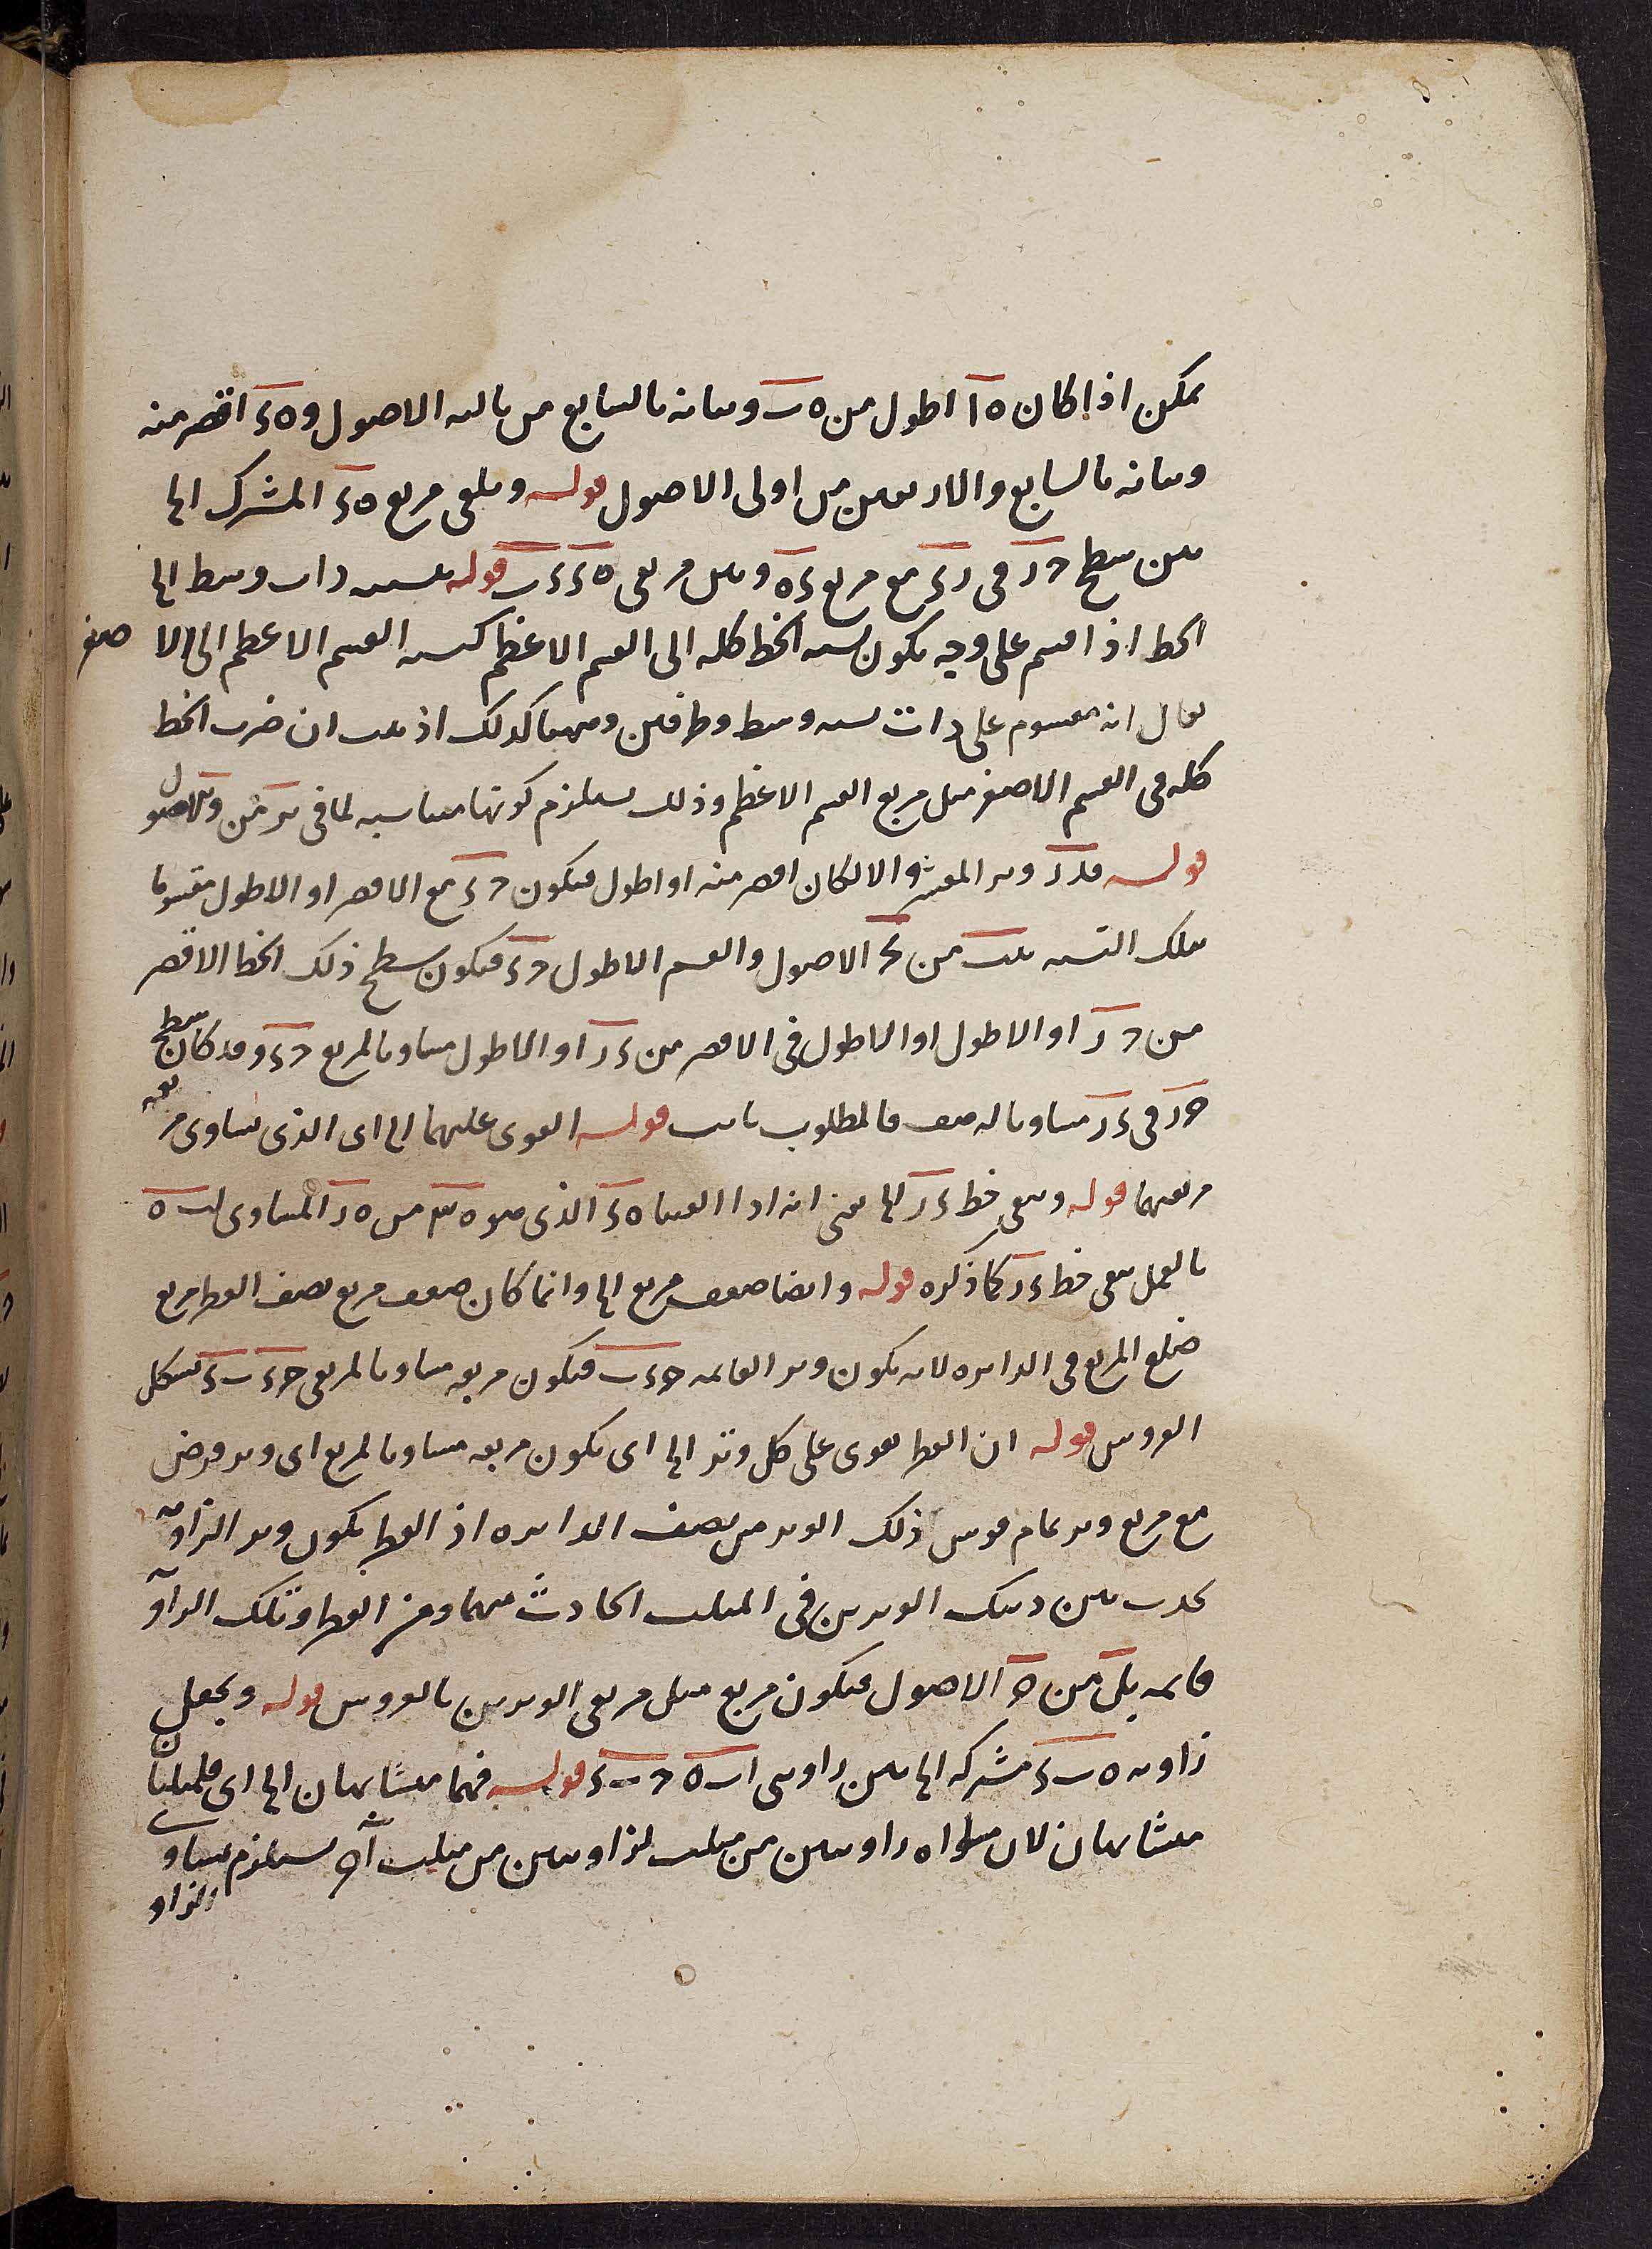 يمكن اذا كان ه ا اطول من ه ب وبيانه بالسابع من ثالثه الاصول و ه ء اقصر منه
وبيانه بالسابع والاربعين من اولى الاصول قوله ويلقى مربع ه ء المشترك الخ
بين سطح ح ر فى ر ء مع مربع ء ه وبين مربعى ه ء ء ب قوله نسبه ذات وسط الخ
الخط اذا قسم على وجه يكون نسبه الخط كله الى القسم الاعظم كنسبه القسم الاعظم الى الا صغر
يقال انه مقسوم على ذات نسبه وسط وطرفين وههنا كذلك اذ ثبت ان ضرب الخط
كله فى القسم الاصغر مثل مربع القسم الاعظم وذلك يستلزم كونها متناسبه لما فى من الاصول
قوله ر وتر المعشر والا لكان اقصر منه او اطول فيكون ح ء مع الاقصر او الاطول مقسوما
بتلك النسبه من الاصول والقسم الاطول ح ء فيكون سطح ذلك الخط الاقصر
من ح ر او الاطول او الاطول فى الاقصر من ء ر او الاطول مساويا لمربع ح ء وقد كان سطح
ح ر فى ء ر مساويا له هف فالمطلوب ثابت قوله القوى عليهما الخ اى الذى يساوى مربعه
مربعيهما قوله ويبقى خط ء ر الخ يعنى انه اذا القينا ه ء الذى هو من ه ر المساوى لب ه
بالعمل يبقى خط ء ر كما ذكره قوله وايضا ضعف مربع الخ وانما كان ضعف مربع نصف القطر مربع
ضلع المربع فى الدايره لانه يكون وتر القايمه ح ء ب فيكون مربعه مساويا لمربعى ح ء ب ء بشكل
العروس قوله ان القطر يقوى على كل وتر الخ اى يكون مربعه مساويا لمربع اى وتر فرض
مع مربع وتر تمام قوس ذلك الوتر من نصف الدايره اذ القطر يكون وتر الزاويه
تحدث بين ذينك الوترين فى المثلث الحادث منهما ومن القطر وتلك الزاو
قايمه من الاصول فيكون مربع مثل مربعى الوترين بالعروس قوله ويجعل
زاويه ه ب ء مشتركه الخ بين زاويتى ا ب ه ح ب ء قوله فهما متشابهان الخ اى فالمثلثان
متشابهان لان مساواه زاويتين من مثلث لزاويتين من مثلث آخر يستلزم تساوى
الزاو